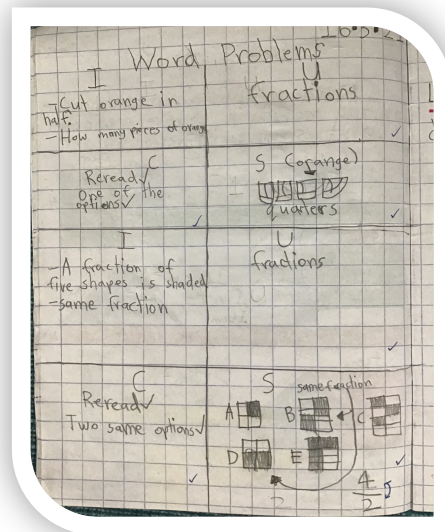 16.5.22
Word Problems
I
- Cut orange in
half.
- How many pieces of orange
U
fractions
C
Reread✓
One of the
options✓
S (orange)
quarters
I
- A fraction of
five shapes is shaded
- same fraction
U
fractions
C
Reread✓
Two same options✓
S
same fraction
A
B
C
D
E